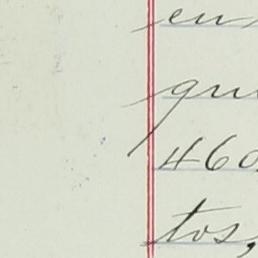 en
que
460
tos,